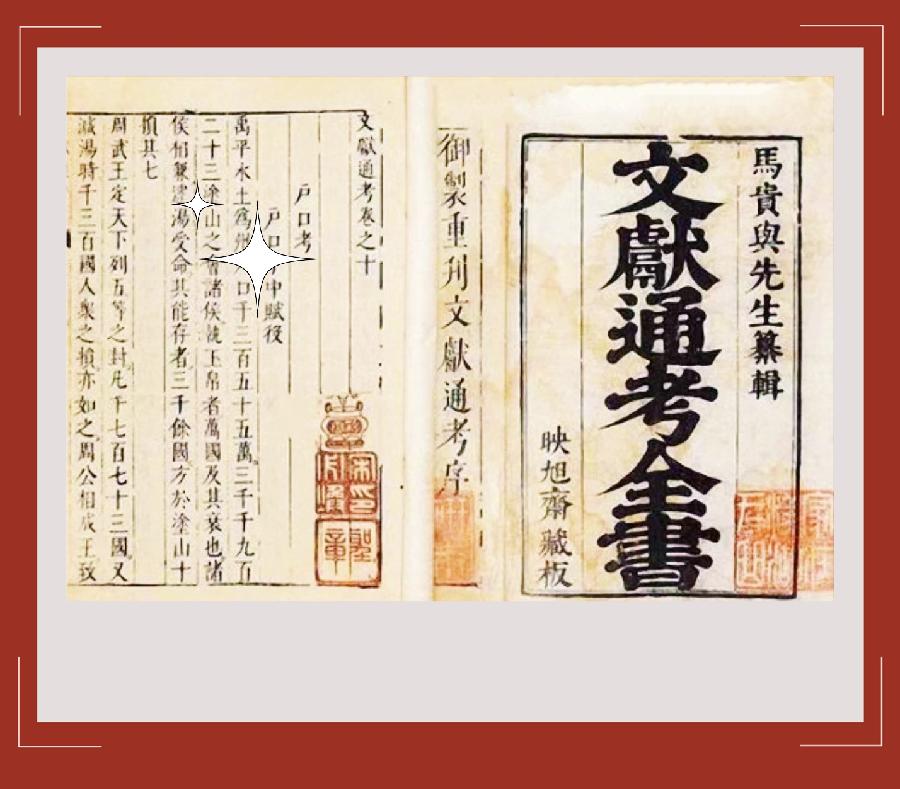 馬貴與先生纂輯
文獻通考全書
映旭齋藏板
御製重刊文獻通考序
文獻通考卷之十
戶口考
戶口中賦役
禹平水土爲口千三百五十五萬三千千九百
二十三塗山之會諸侯執玉帛者萬國及其衰也諸
侯相兼逮湯受命其能存者三千餘國方於塗山十
損其七
周武王定天下列五等之封凡千七百七十三國又
減湯時千三百國人衆之損亦如之周公相成王致